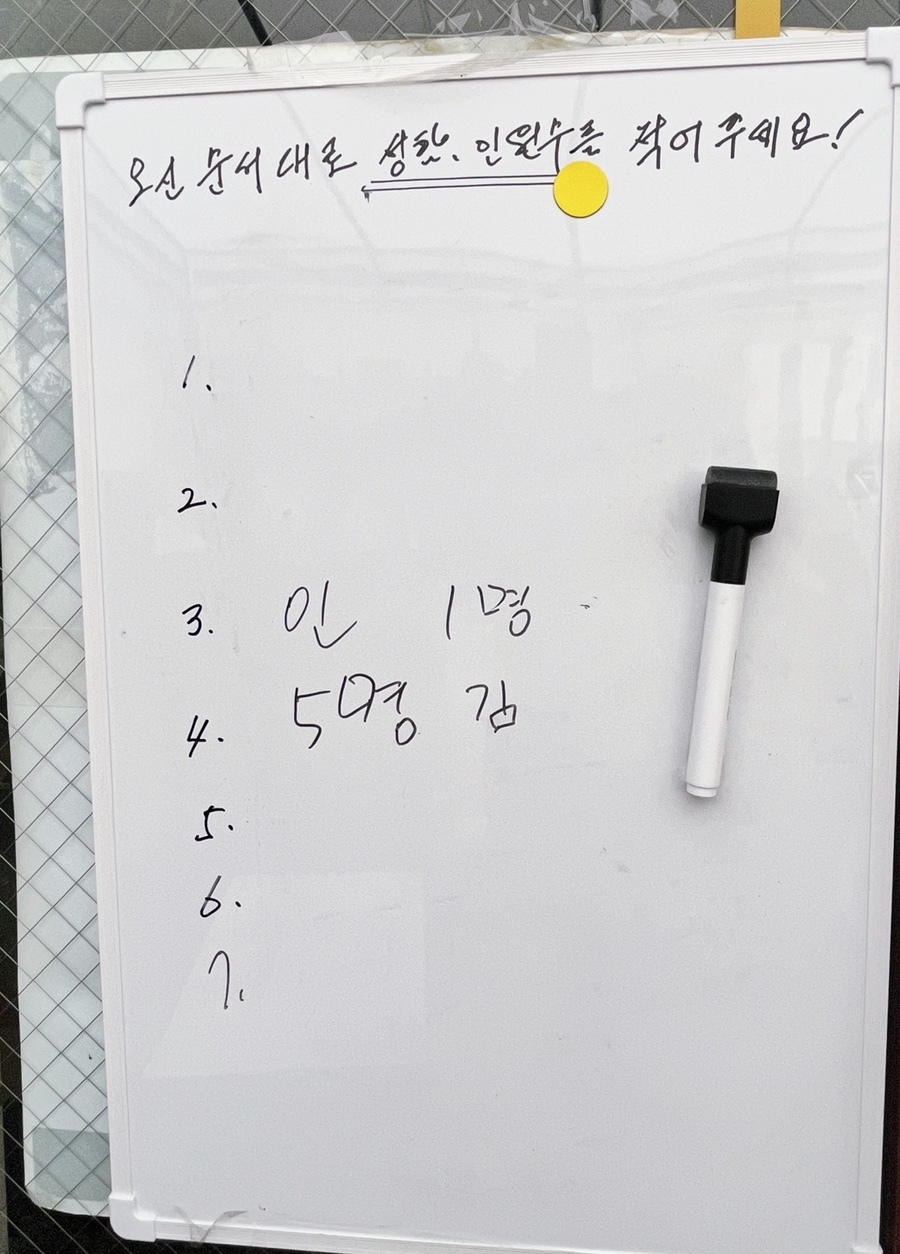 오신 문서대로 성함. 인원수를 적어 주세요!
1.
2.
3. 인 1명
4. 5명 김
5.
6.
7.